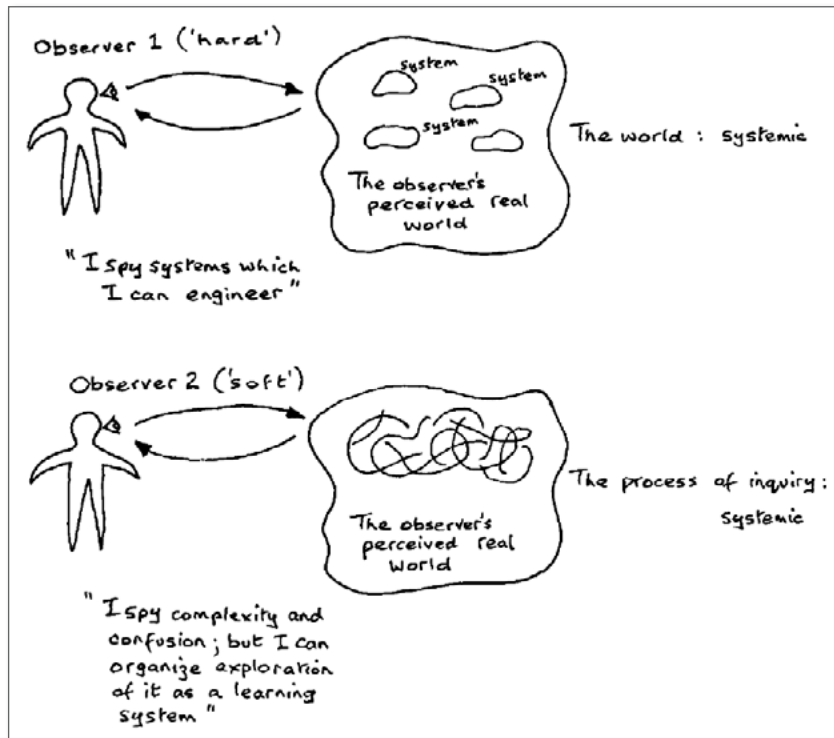 Observer 1 ('hard')
system
system
system
The observer's
perceived real
world
The world : systemic
"I spy systems which
I can engineer"
Observer 2 ('soft')
The observer's
perceived real
world
The process of inquiry :
systemic
"I spy complexity and
confusion ; but I can
organize exploration
of it as a learning
system"